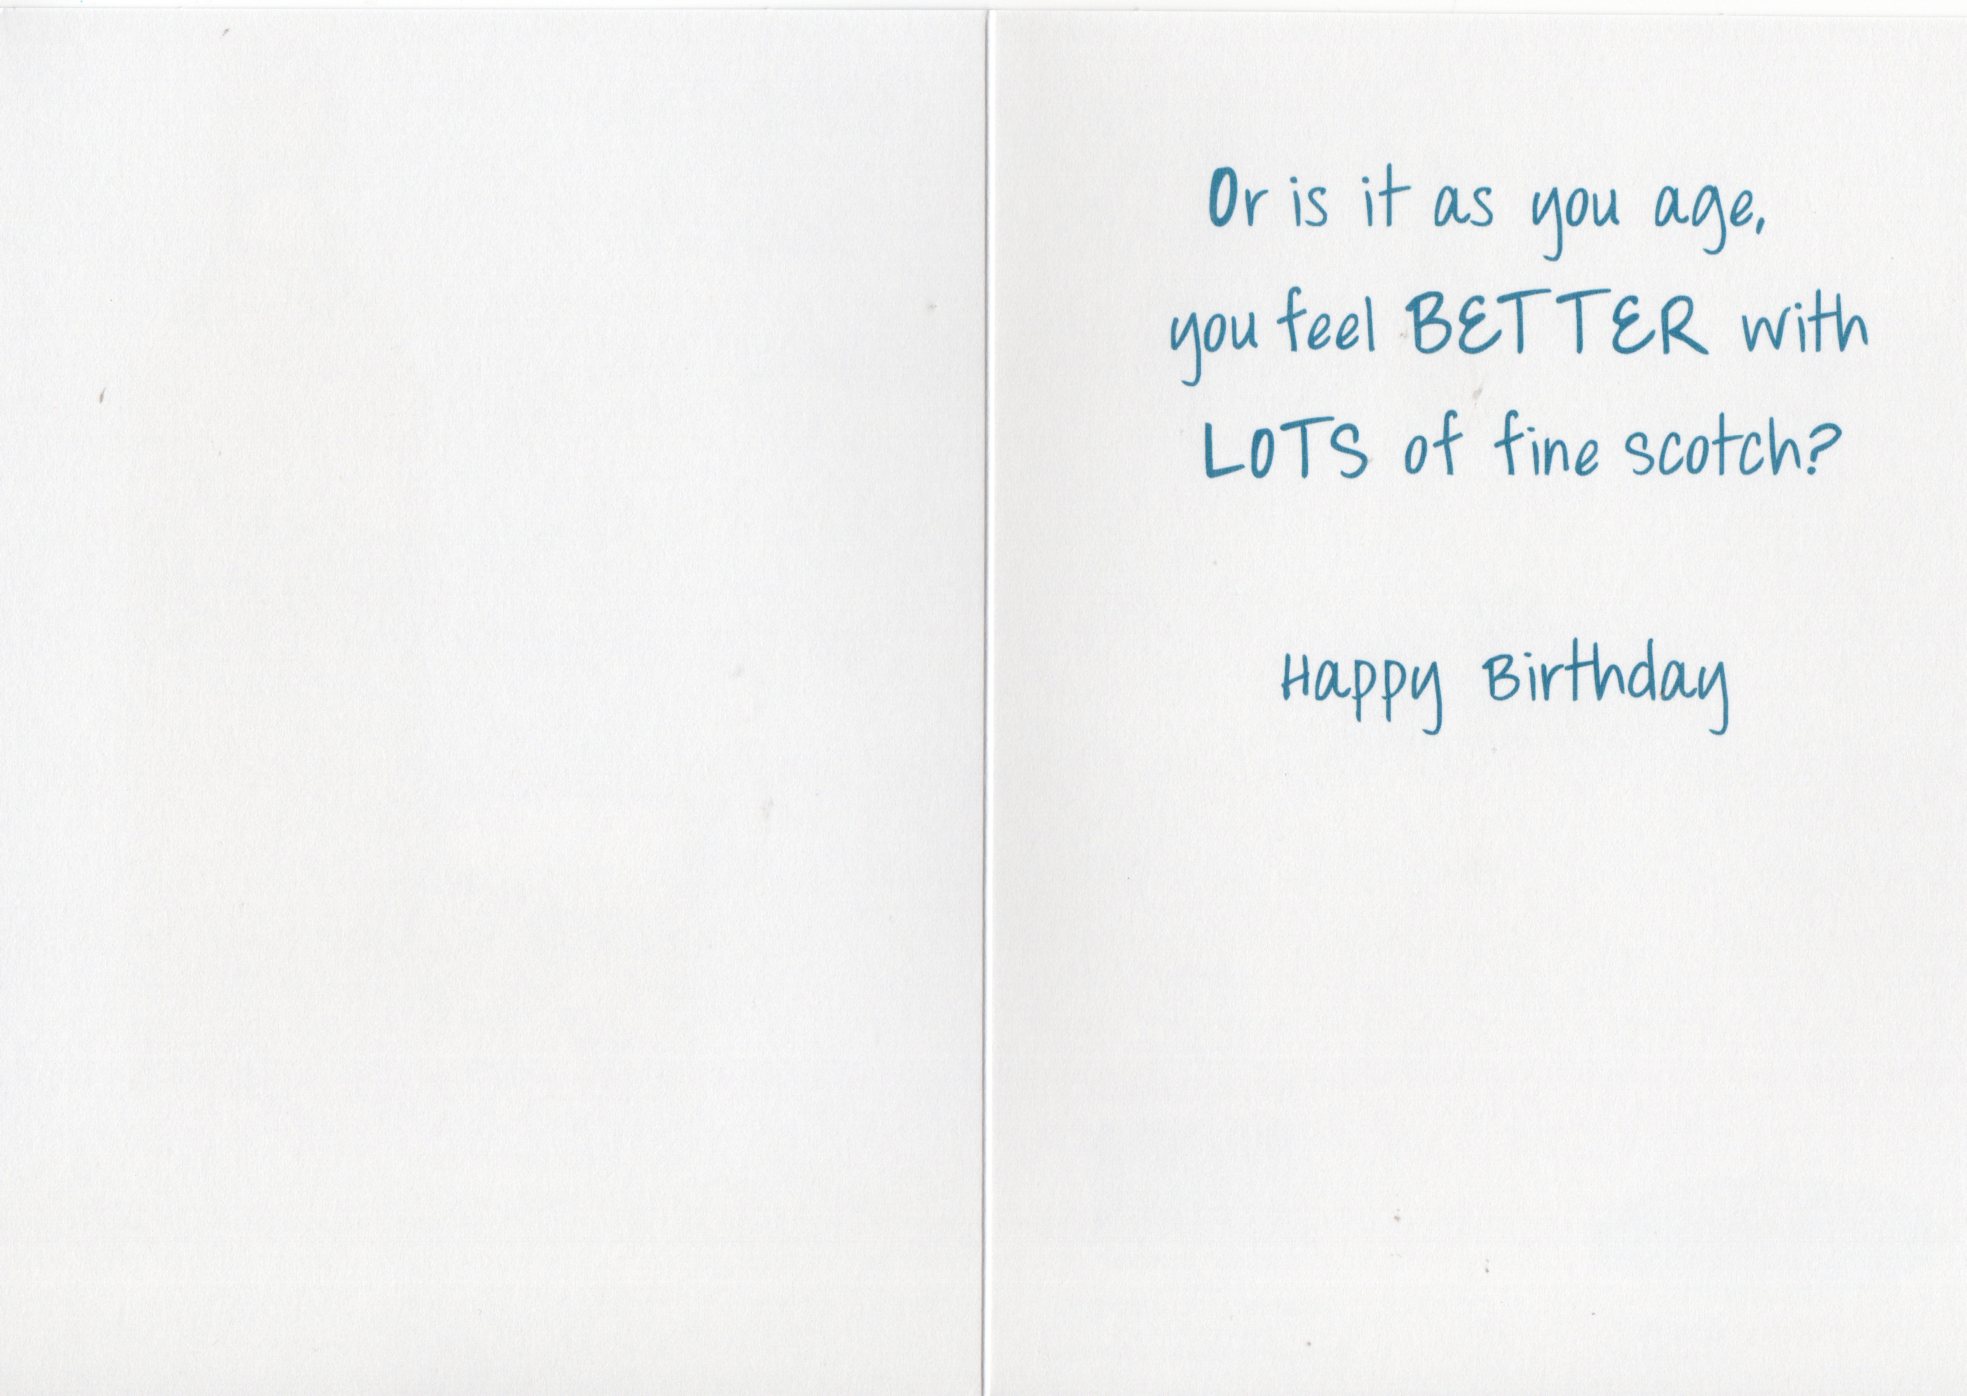 Or is it as you age,
you feel BETTER with
LOTS of fine scotch?
Happy Birthday